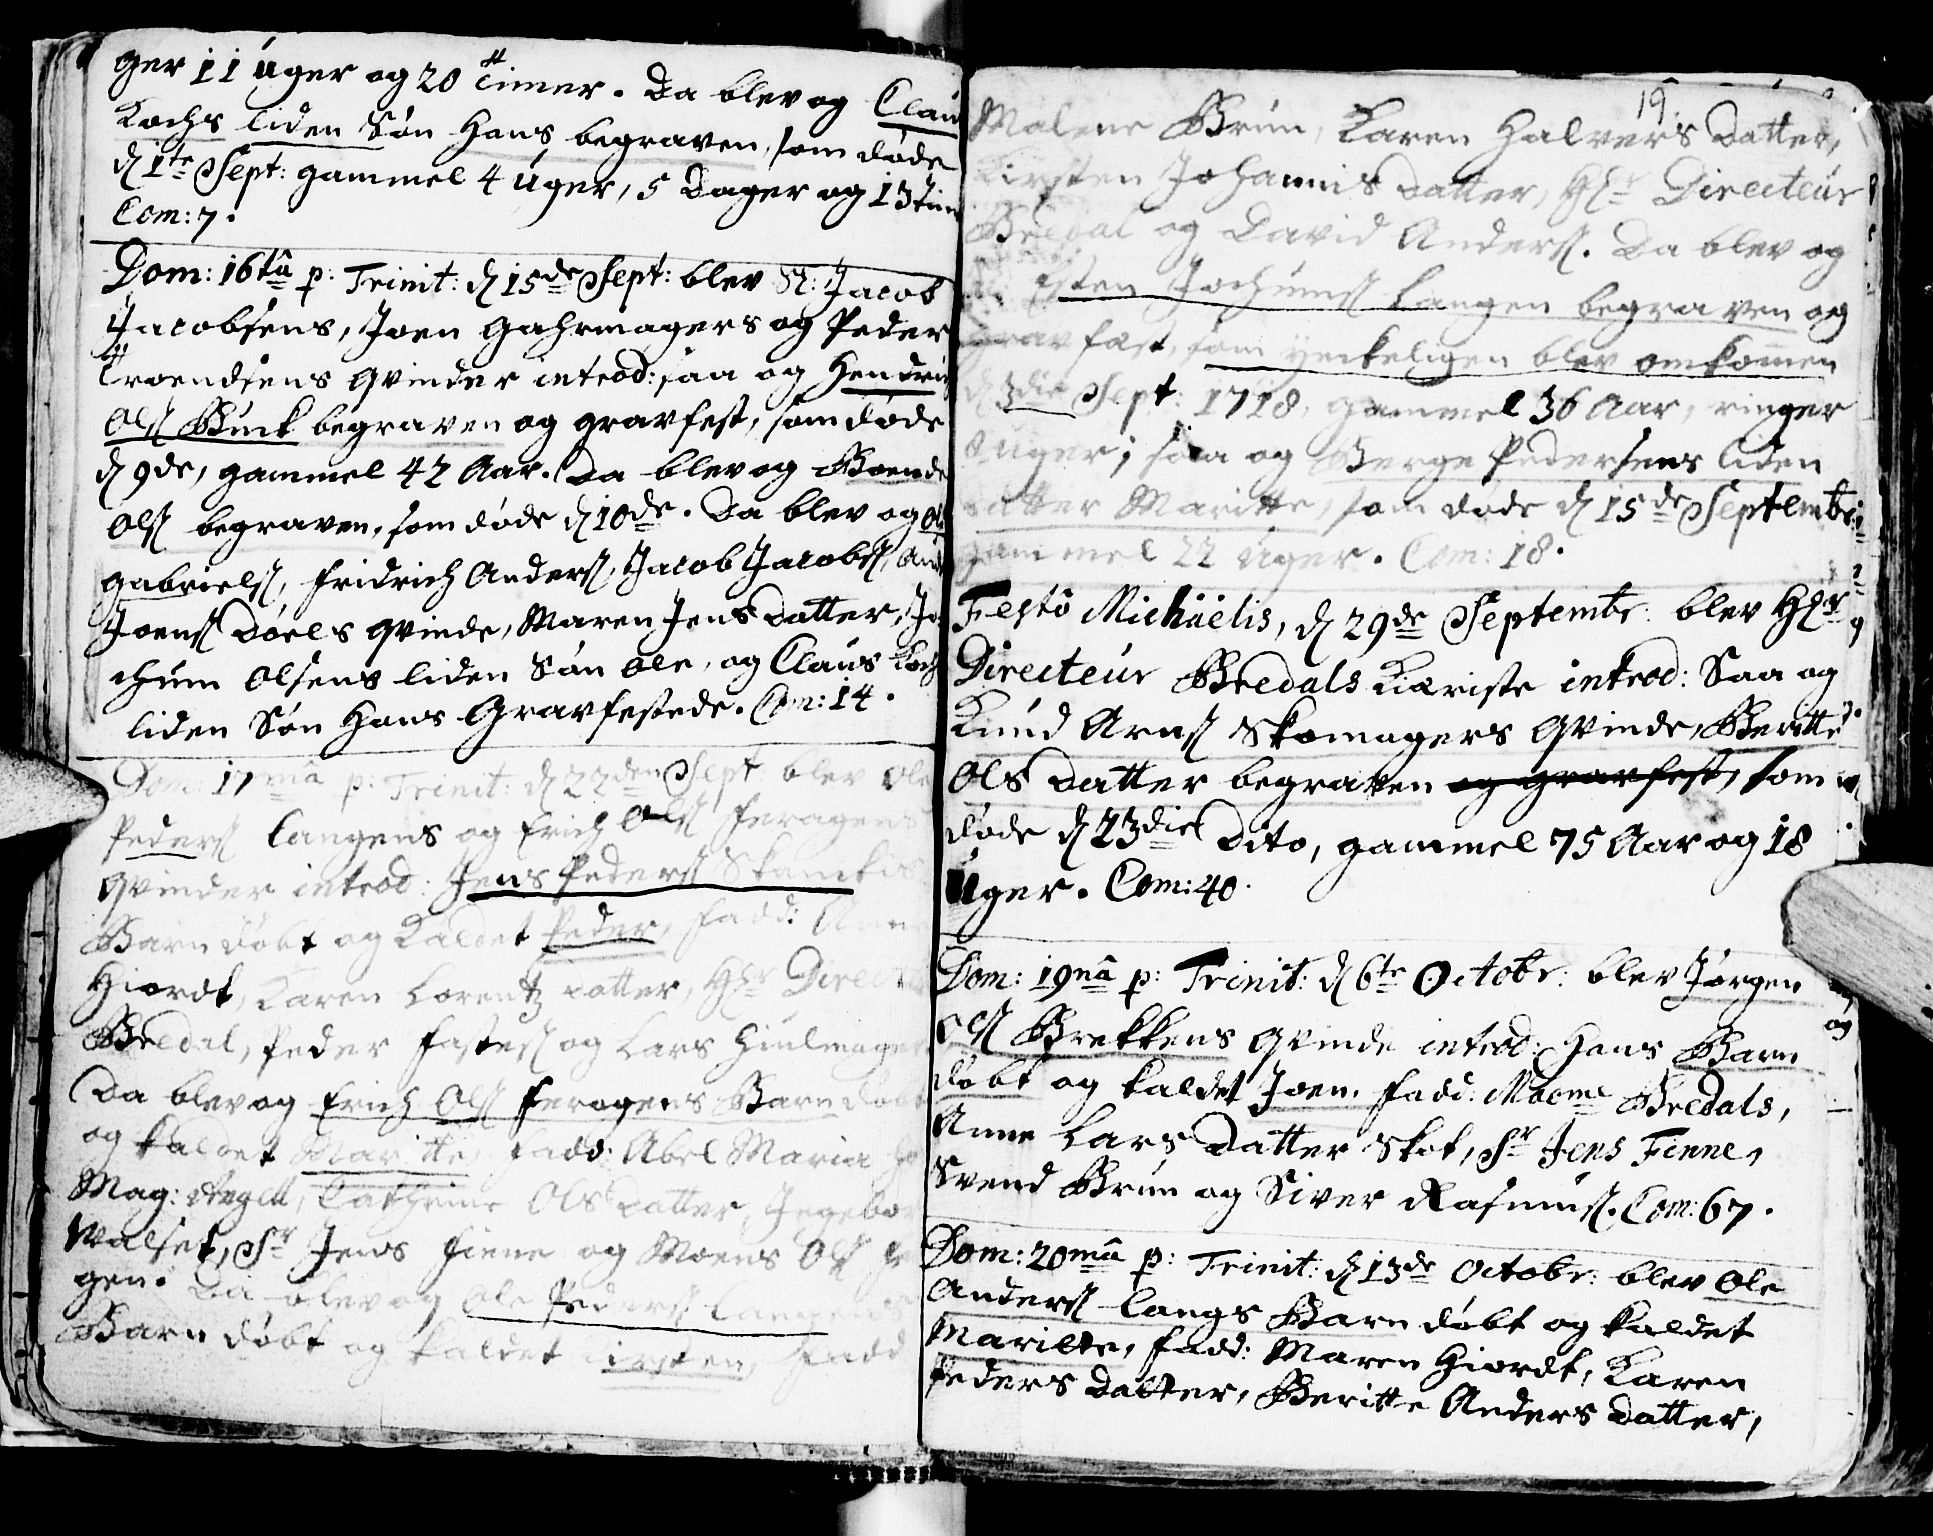 ger 11 uger og 20 Timer. Da blev og Clau
Kochs liden Søn Hans begraven, som døde
d 1te Sept: gammel 4 uger, 5 Dager og 13 tim
Com: 7.
Dom: 16tâ p: Trinit: d 15de Sept: blev St: Jacob
Jacobsens, Joen Gahrmagers og Peder
Troendsens qvinder introd: saa og Hendrich
Ols Buck begraven og gravfest, som døde
d 9de, gammel 42 Aar. Da blev og Boende
Ols begraven, som døde d 10de. Da blev og Ol
Gabriels, Fridrich Anders, Jacob Jacobs, And
Joens Döels qvinde, Maren Jens datter, Jo
chum Olsens liden Søn Ole, og Claus Koch
liden Søn Hans Gravfestede. Com: 14.
Dom: 17mâ p: Trinit: d 22den Sept blev Ole
Peders Langens og Erich Ols Feragens
qvinder introd: Jens Peders
Barn døbt og kaldet Peder, fadd: Anne
Hiordt, Karen Lorentz datter, Hr Direct
Bredal, Peder Fastes og Lars Hiulmager
Da blev og Erich Ols Feragens Barn døbt
og kaldet Maritte, fadd: Abel Maria
Mag: Angell, Cathrine Ols datter, Ingebor
Walset, Sr Jens Finne og Moens Ols
gen. Da blev og Ole Peders Lange
Barn døbt og kaldet Kirsten, Fadd
19.
Malene Brun, Karen Halvers Datter,
Kirsten Johannis datter, Hr Directeur
Bredal og David Anders. Da blev og
Esten Jochums Langen begraven og
gravfest, som ynkeligen blev omkommen
d 3die Sept: 1718, gammel 36 Aar, ringer
uger; saa og Berge Pedersens liden
datter Maritte, som døde d 15de Septembr:
gammel 22 uger. Com: 18.
Festô Michäelis, d 29de Septembr: blev Hr
Directeur Bredals Kiæriste introd: Saa og
Knud Arns Skomagers Qvinde, Beritte
Ols datter begraven og gravfest, som
døde d 23die Dito, gammel 75 Aar og 18
Uger. Com: 40.
Dom: 19nâ p: Trinit: d 6te Octobr: blev Jørgen
Ols Brekkens qvinde introd: Hans Barn
døbt og kaldet Joen. Fadd: Madme Bredals,
Anne Lars datter Skot, Sr Jens Finne,
Svend Brun og Siver Rasmus. Com: 67.
Dom: 20mâ p: Trinit: d 13de Octobr: blev Ole
Anders Langs Barn døbt og kaldet
Maritte, fadd: Maren Hiordt, Karen
Peders datter, Beritte Anders datter,